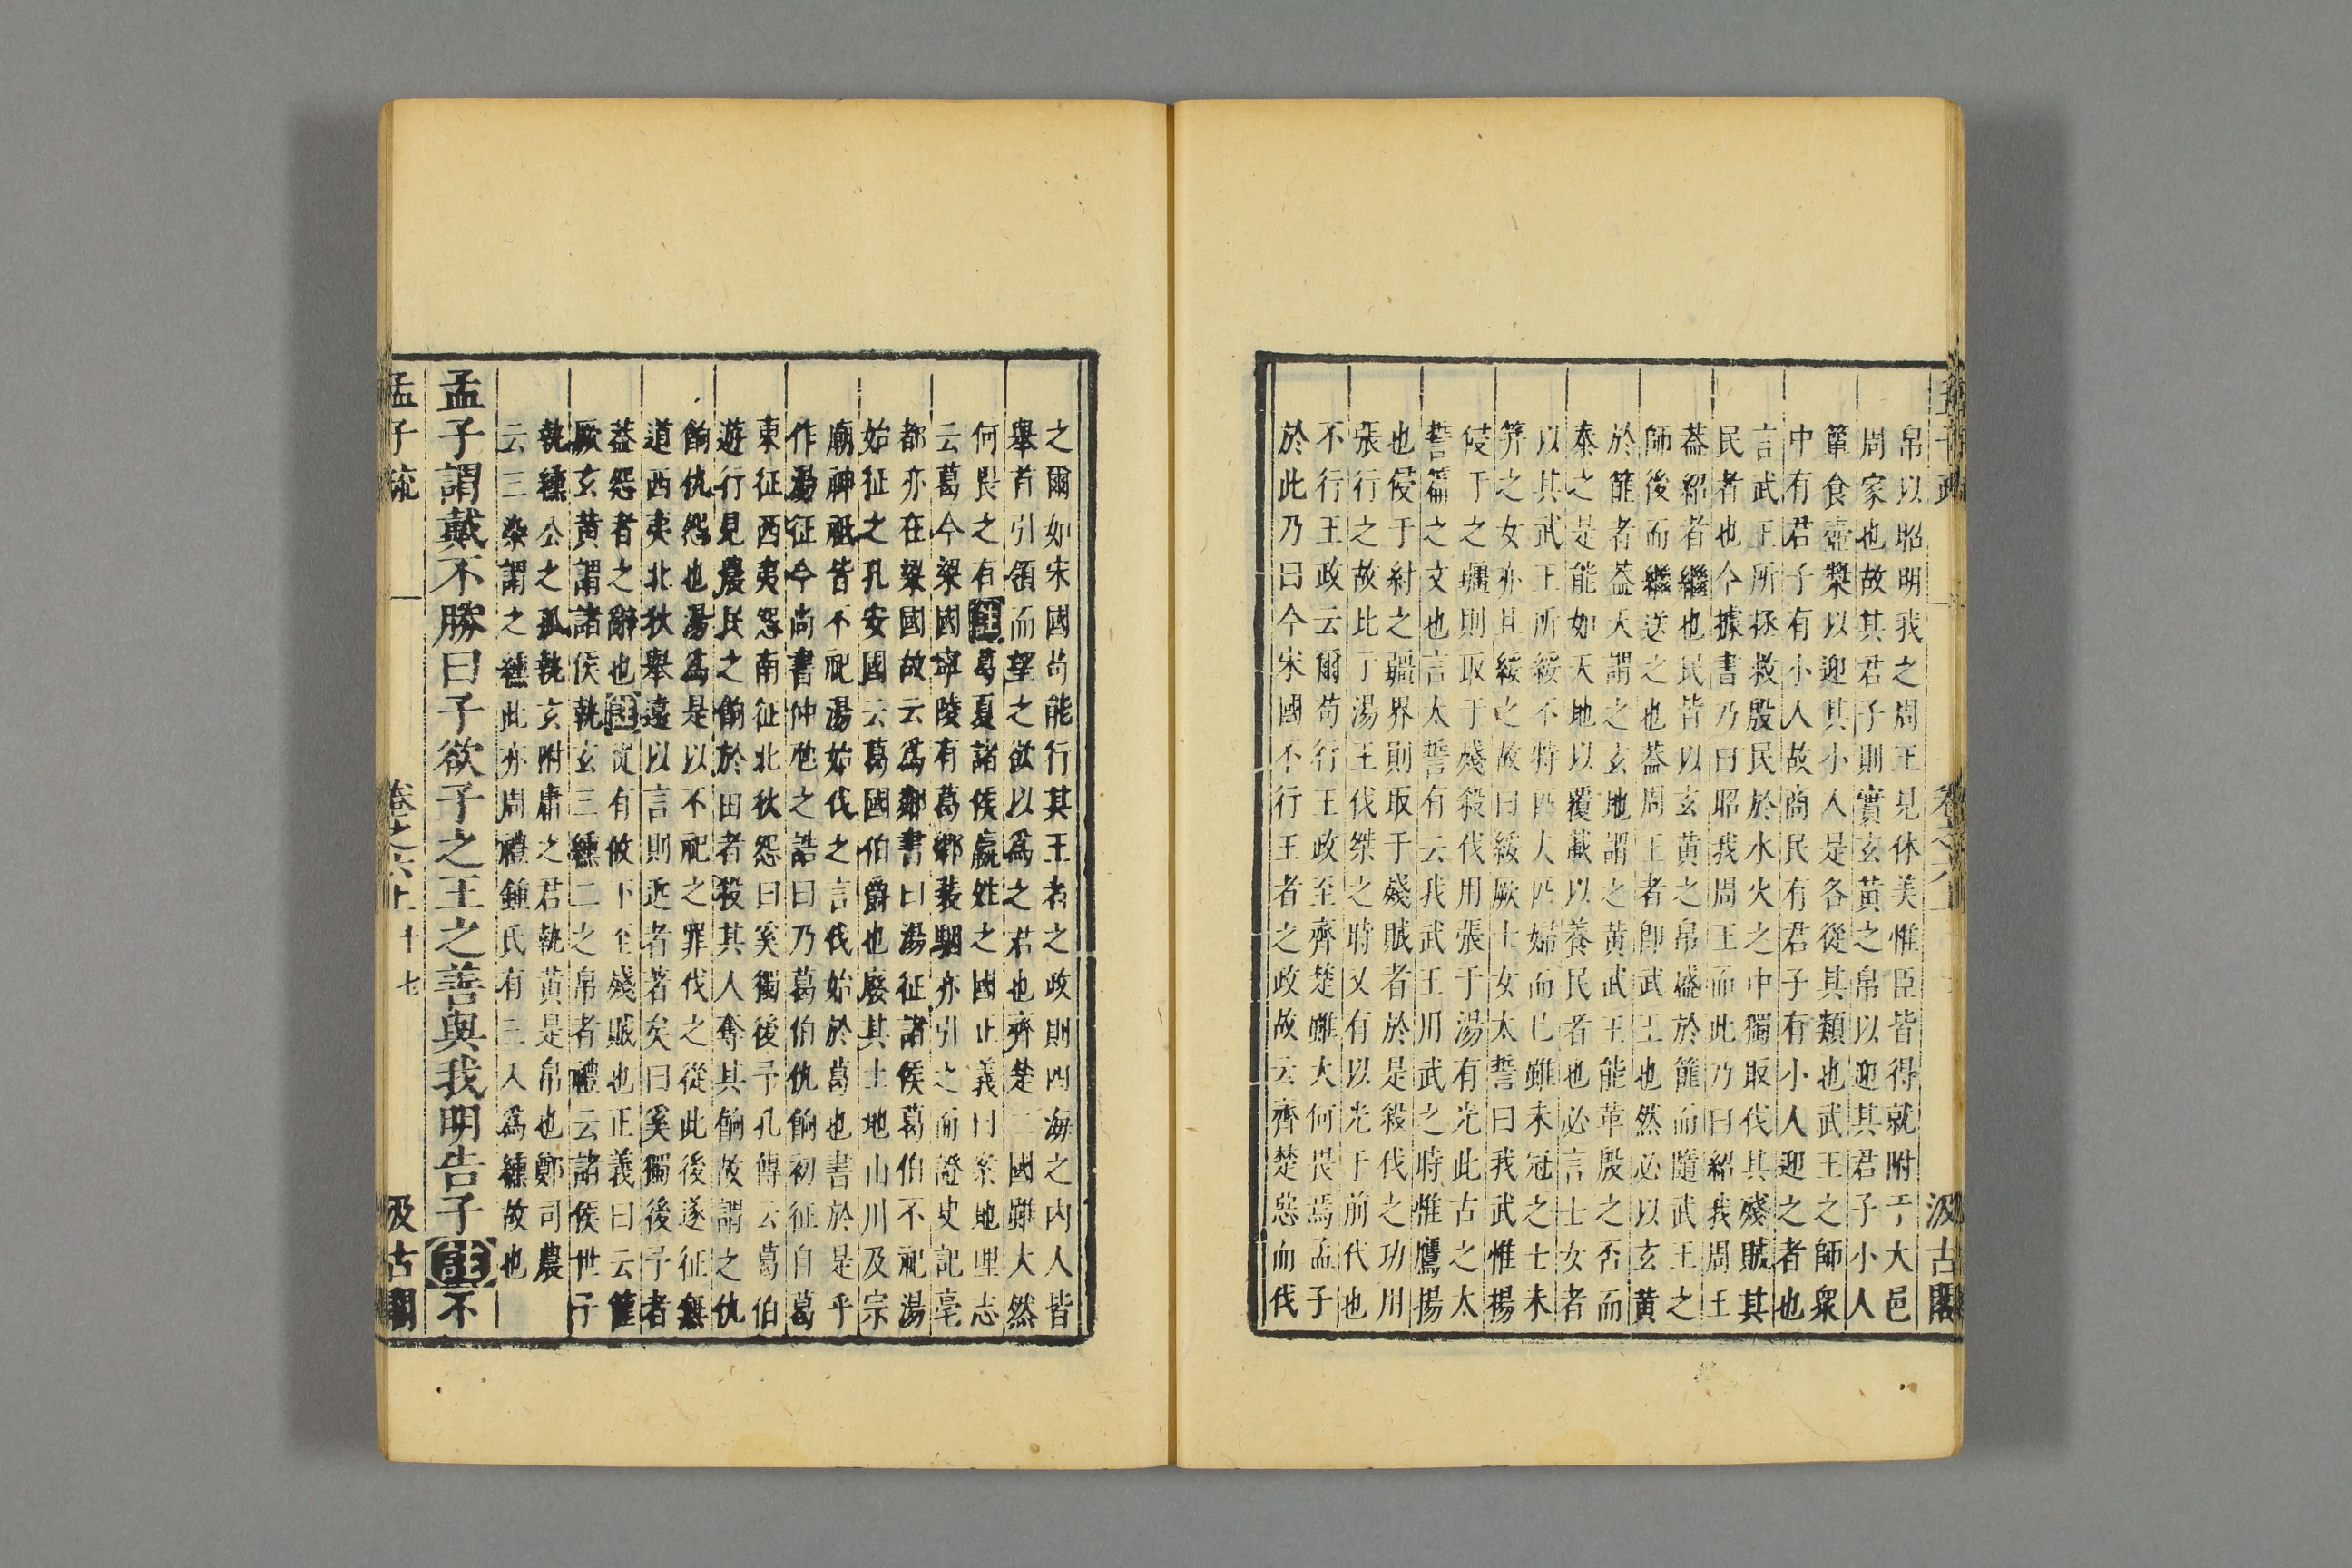 帛以昭明我之周王見休美惟臣皆得就附于大邑
周家也故其君子則實玄黃之帛以迎其君子小人
簞食壺漿以迎其小人是各從其類也武王之師衆
中有君子有小人故商民有君子有小人迎之者也
言武王所拯救殷民於水火之中獨取伐其殘賊其
民者也今據書乃曰昭我周王而此乃曰紹我周王
葢紹者繼也民皆以玄黃之帛盛於篚而隨武王之
師後而繼送之也葢周王者卽武王也然必以玄黃
於篚者葢天謂之玄地謂之黃武王能革殷之否而
泰之是能如天地以覆載以養民者也必言士女者
以其武王所綏不特匹夫匹婦而已雖未冠之士未
筓之女亦且綏之故曰綏厥士女太誓曰我武惟揚
侵于之疆則取于殘殺伐用張于湯有光此古之太
誓篇之文也言太誓有云我武王用武之時惟鷹揚
也侵于紂之疆界則取于殘賊者於是殺伐之功用
張行之故比于湯王伐桀之時又有以光于前代也
不行王政云爾苟行王政至齊楚雖大何畏焉孟子
於此乃曰今宋國不行王者之政故云齊楚惡而伐
汲古閣
之爾如宋國苟能行其王者之政則四海之内人皆
舉首引領而望之欲以爲之君也齊楚二國雖大然
何畏之有註葛夏諸侯嬴姓之國正義曰案地理志
云葛今梁國寧陵有葛鄉裴駰亦引之而證史記亳
都亦在梁國故云爲鄰書曰湯征諸侯葛伯不祀湯
始征之孔安國云葛國伯爵也廢其土地山川及宗
廟神祇皆不祀湯始伐之言伐始於葛也書於是乎
作湯征今尚書仲虺之誥曰乃葛伯仇餉初征自葛
東征西夷怨南征北狄怨曰奚獨後予孔傳云葛伯
遊行見農民之餉於田者殺其人奪其餉故謂之仇
餉仇怨也湯爲是以不祀之罪伐之從此後遂征無
道西夷北狄舉遠以言則近者著矣曰奚獨後予者
葢怨者之辭也註從有攸下至殘賊也正義曰云篚
厥玄黃謂諸侯執玄三纁二之帛者禮云諸侯世子
執纁公之孤執玄附庸之君執黃是帛也鄭司農
云三染謂之纁此亦周禮鍾氏有三入爲纁故也
孟子謂戴不勝曰子欲子之王之善與我明告子註不
孟子疏
卷之六上
十七
汲古閣